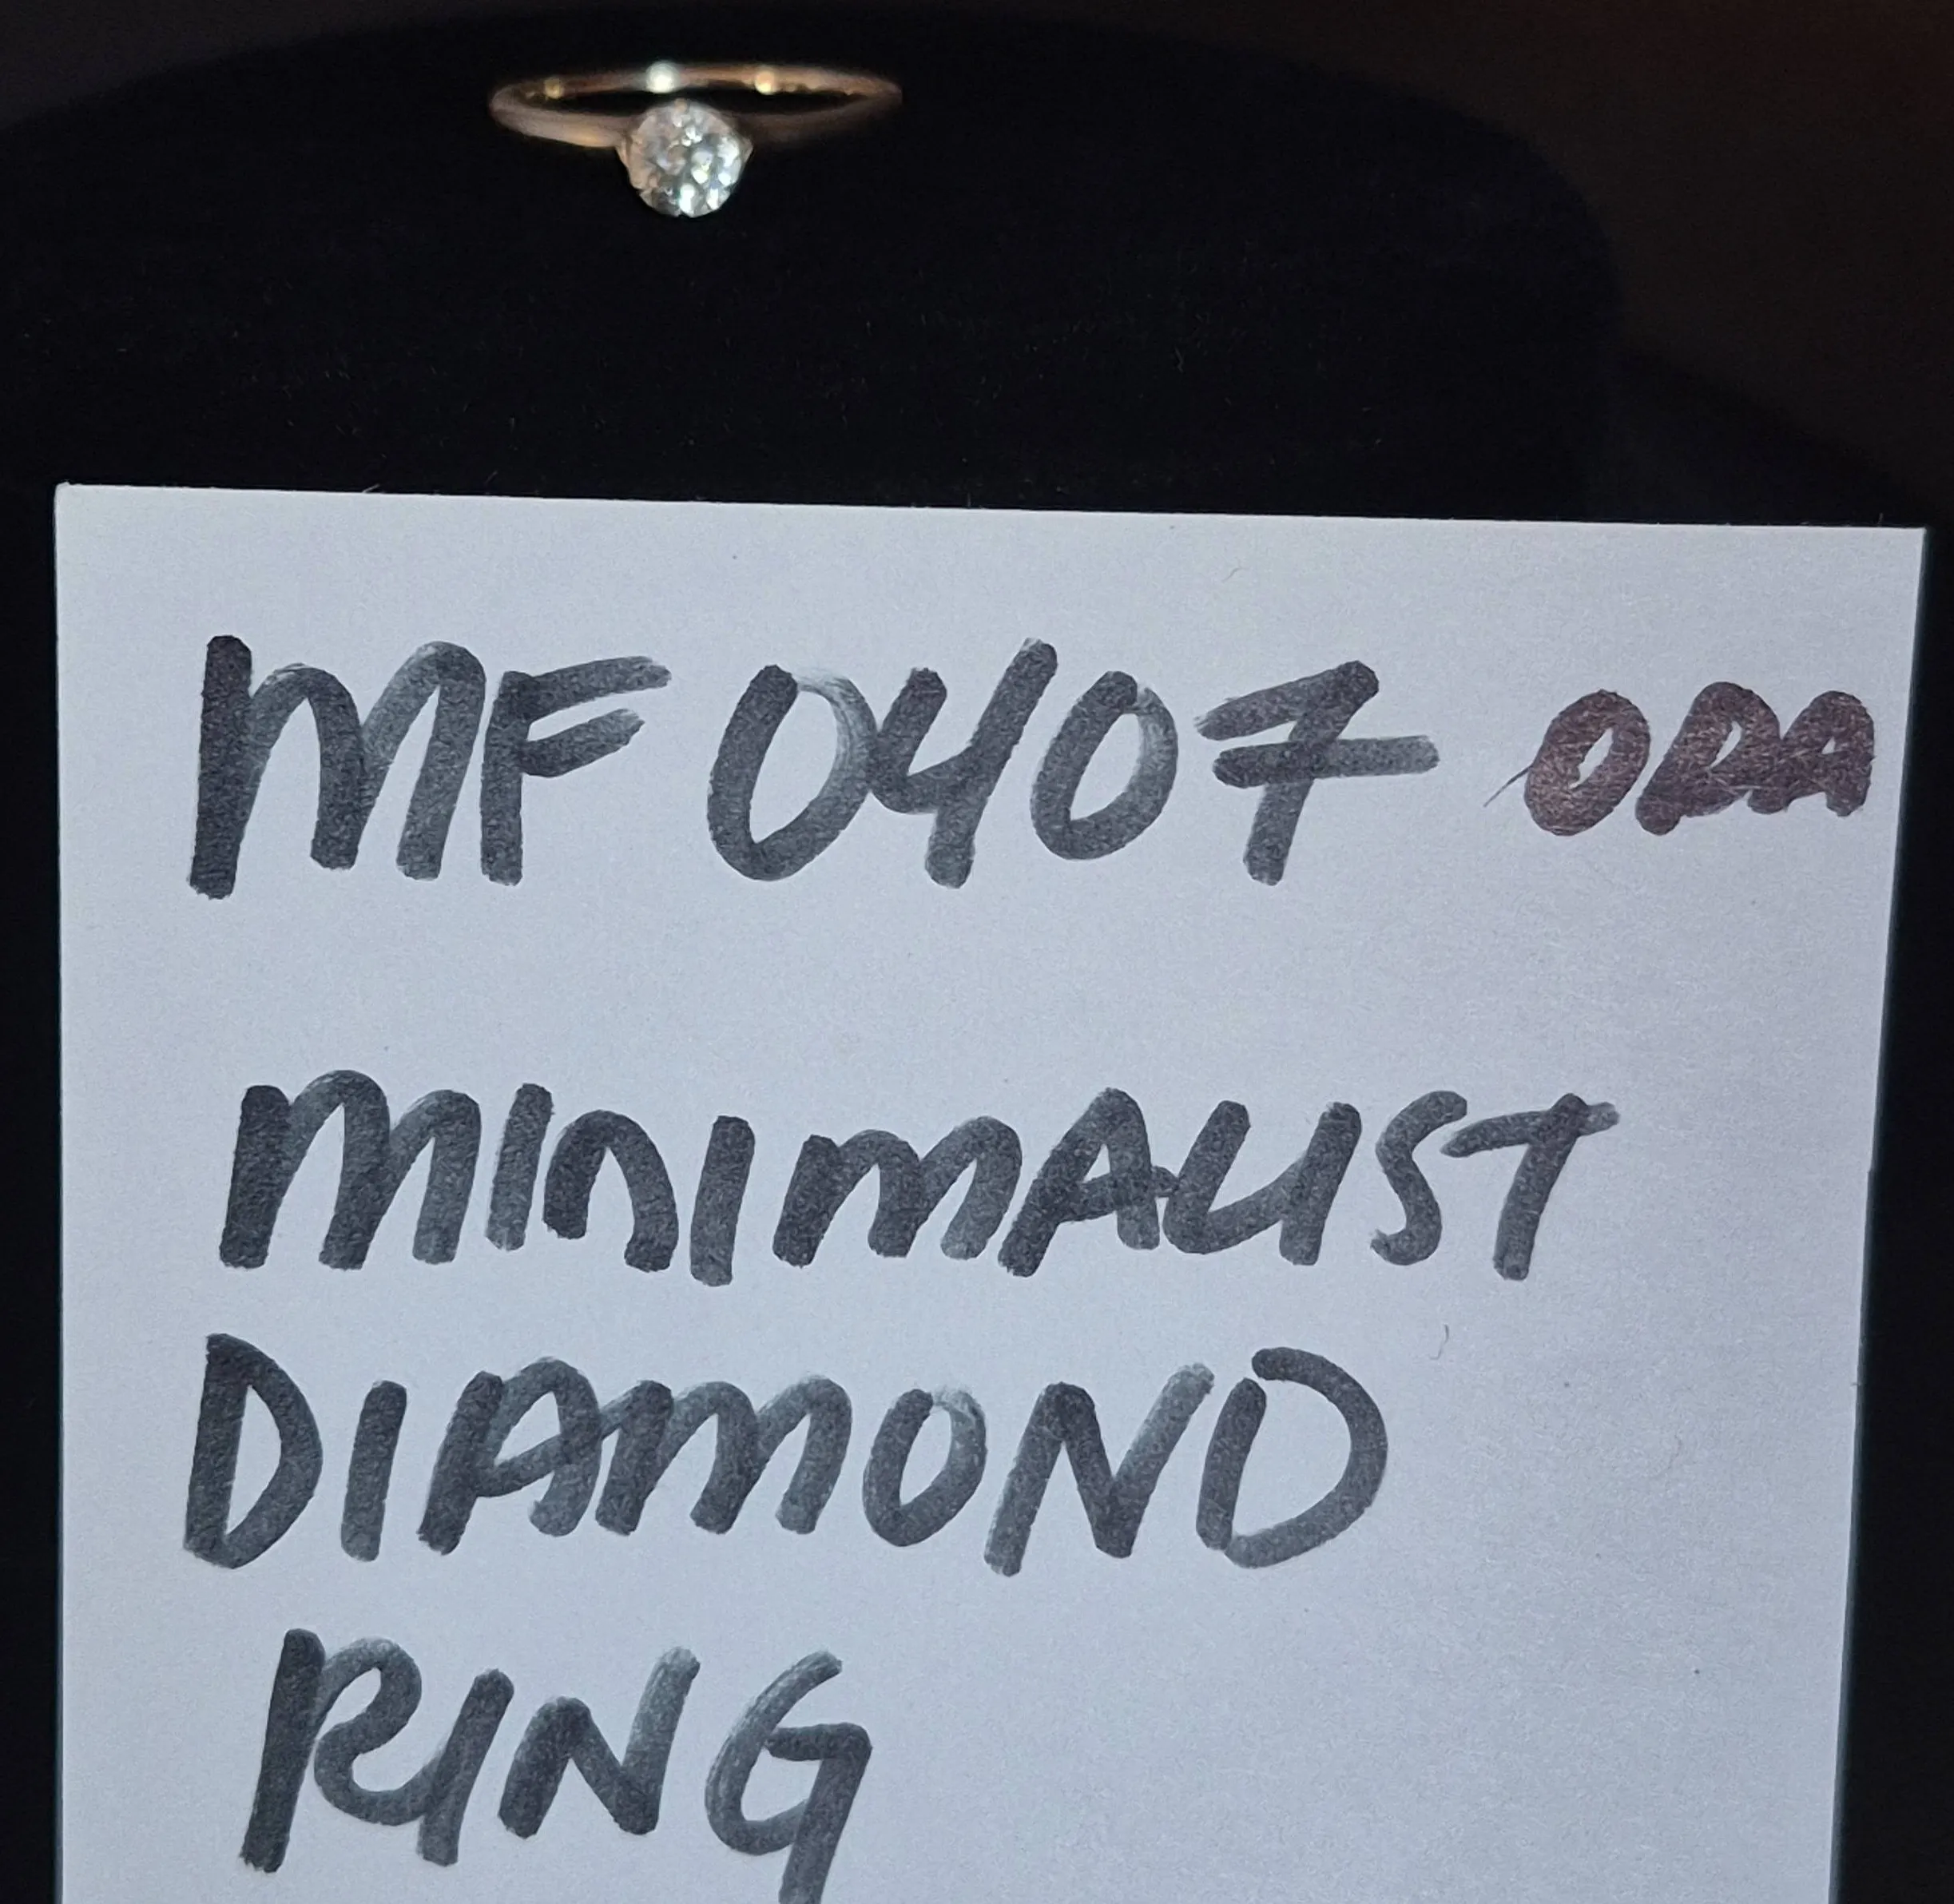 MF 0407 ODA
MINIMALIST
DIAMOND
RING